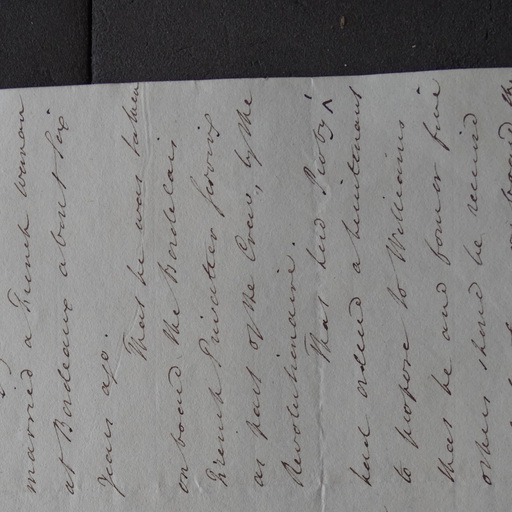 married a French woman
at Bordeaux about six
years ago.
That he was taken
on board the Bordelais
French Privateer serving
as part of the Crew, by the
Revolutionaire.
That
had ordered a Lieutenant
to propose to Williams
that he and four or five
others should be received
on board the